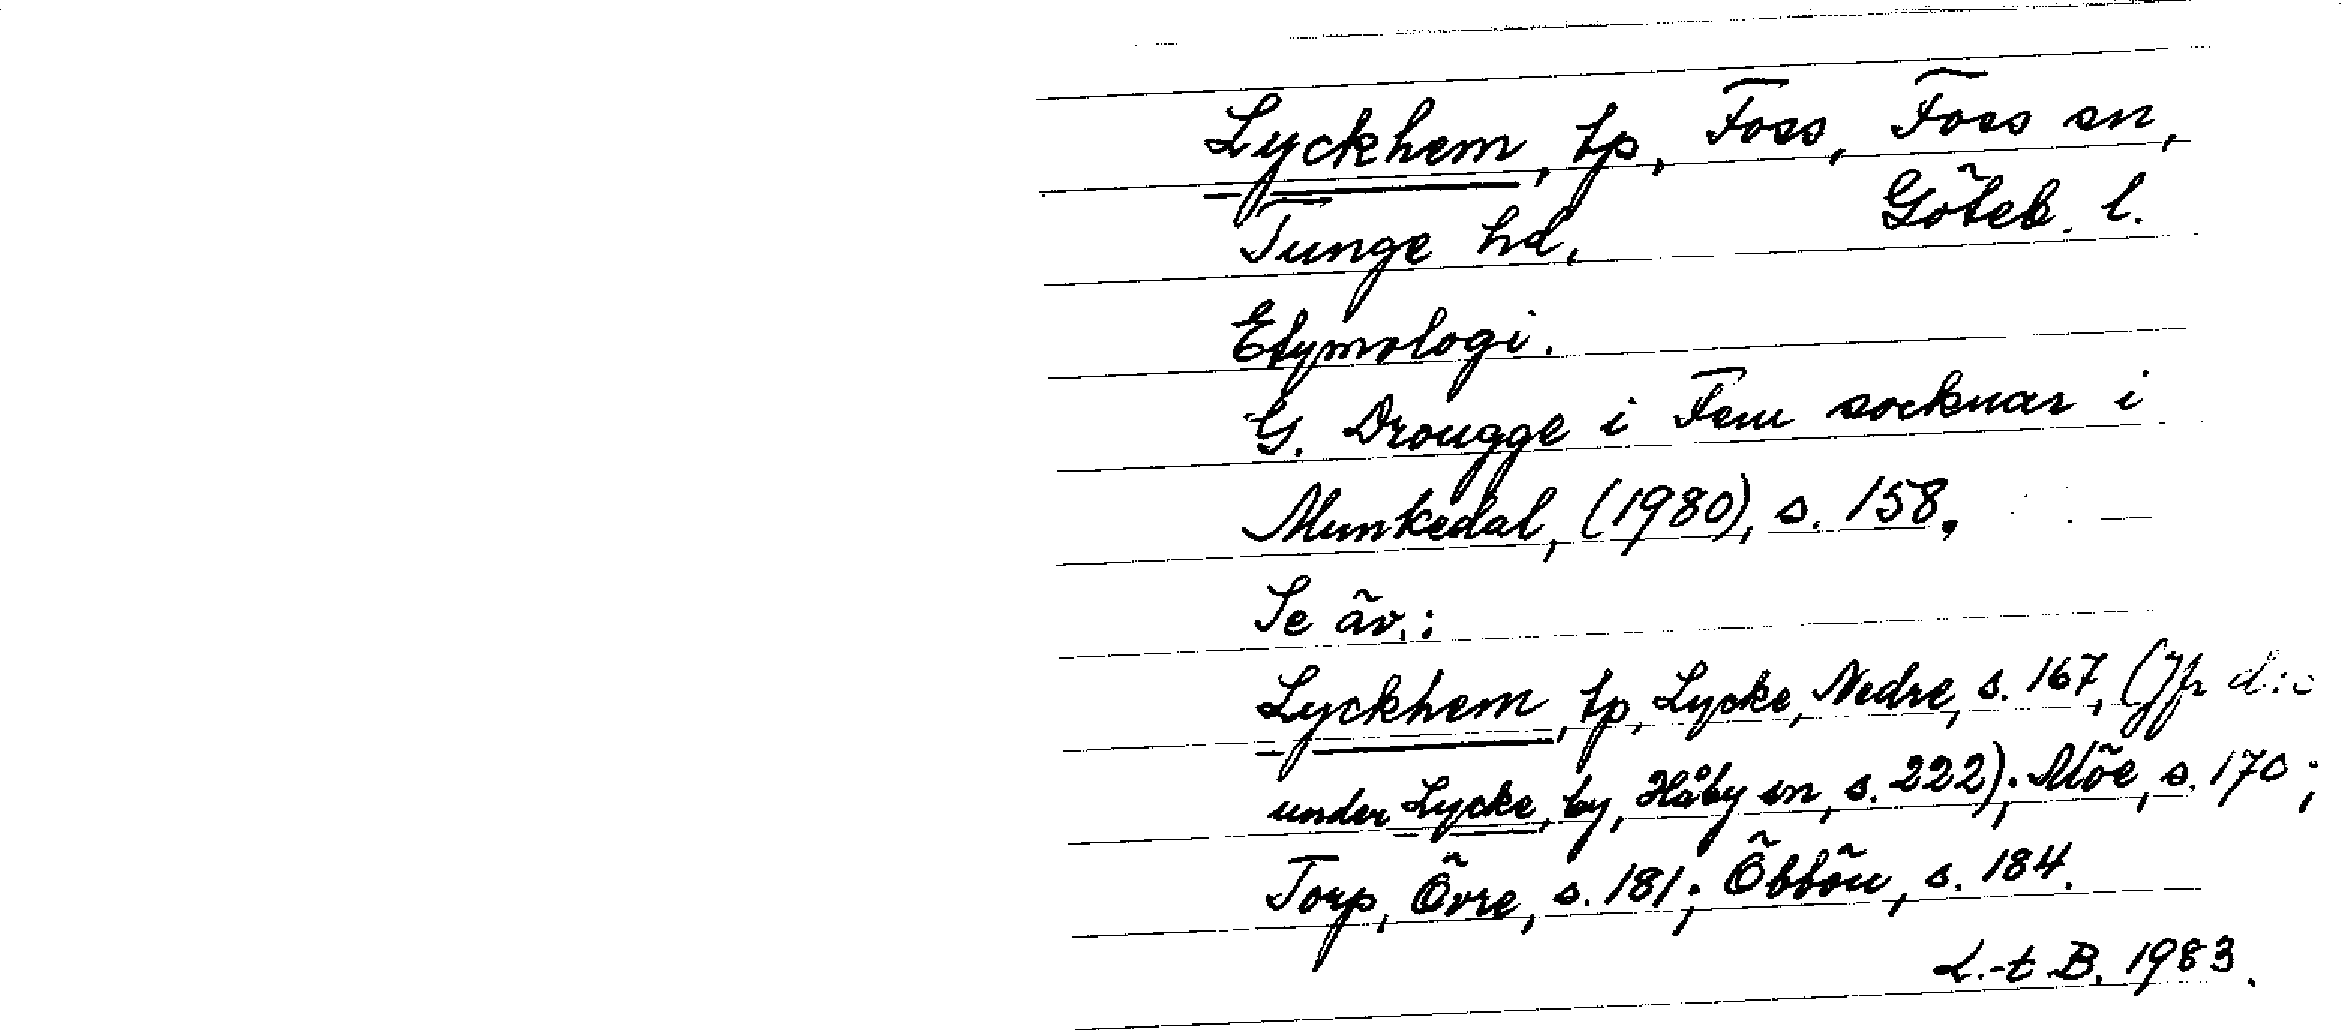 Lyckhem, tp, Foss, Foss sn,
Tunge hd. Göteb. l.
Etymologi.
G. Drougge i Fem socknar i
Munkedal, (1980), s. 158.
Se äv.:
Lyckhem, tp, Lycke, Nedre, s. 167, (Jfr
under Lycke, by, Håby sn, s. 222); Möe, s. 170;
Torp, Övre, s. 181; Öbbön, s. 184.
L.-t B. 1983.